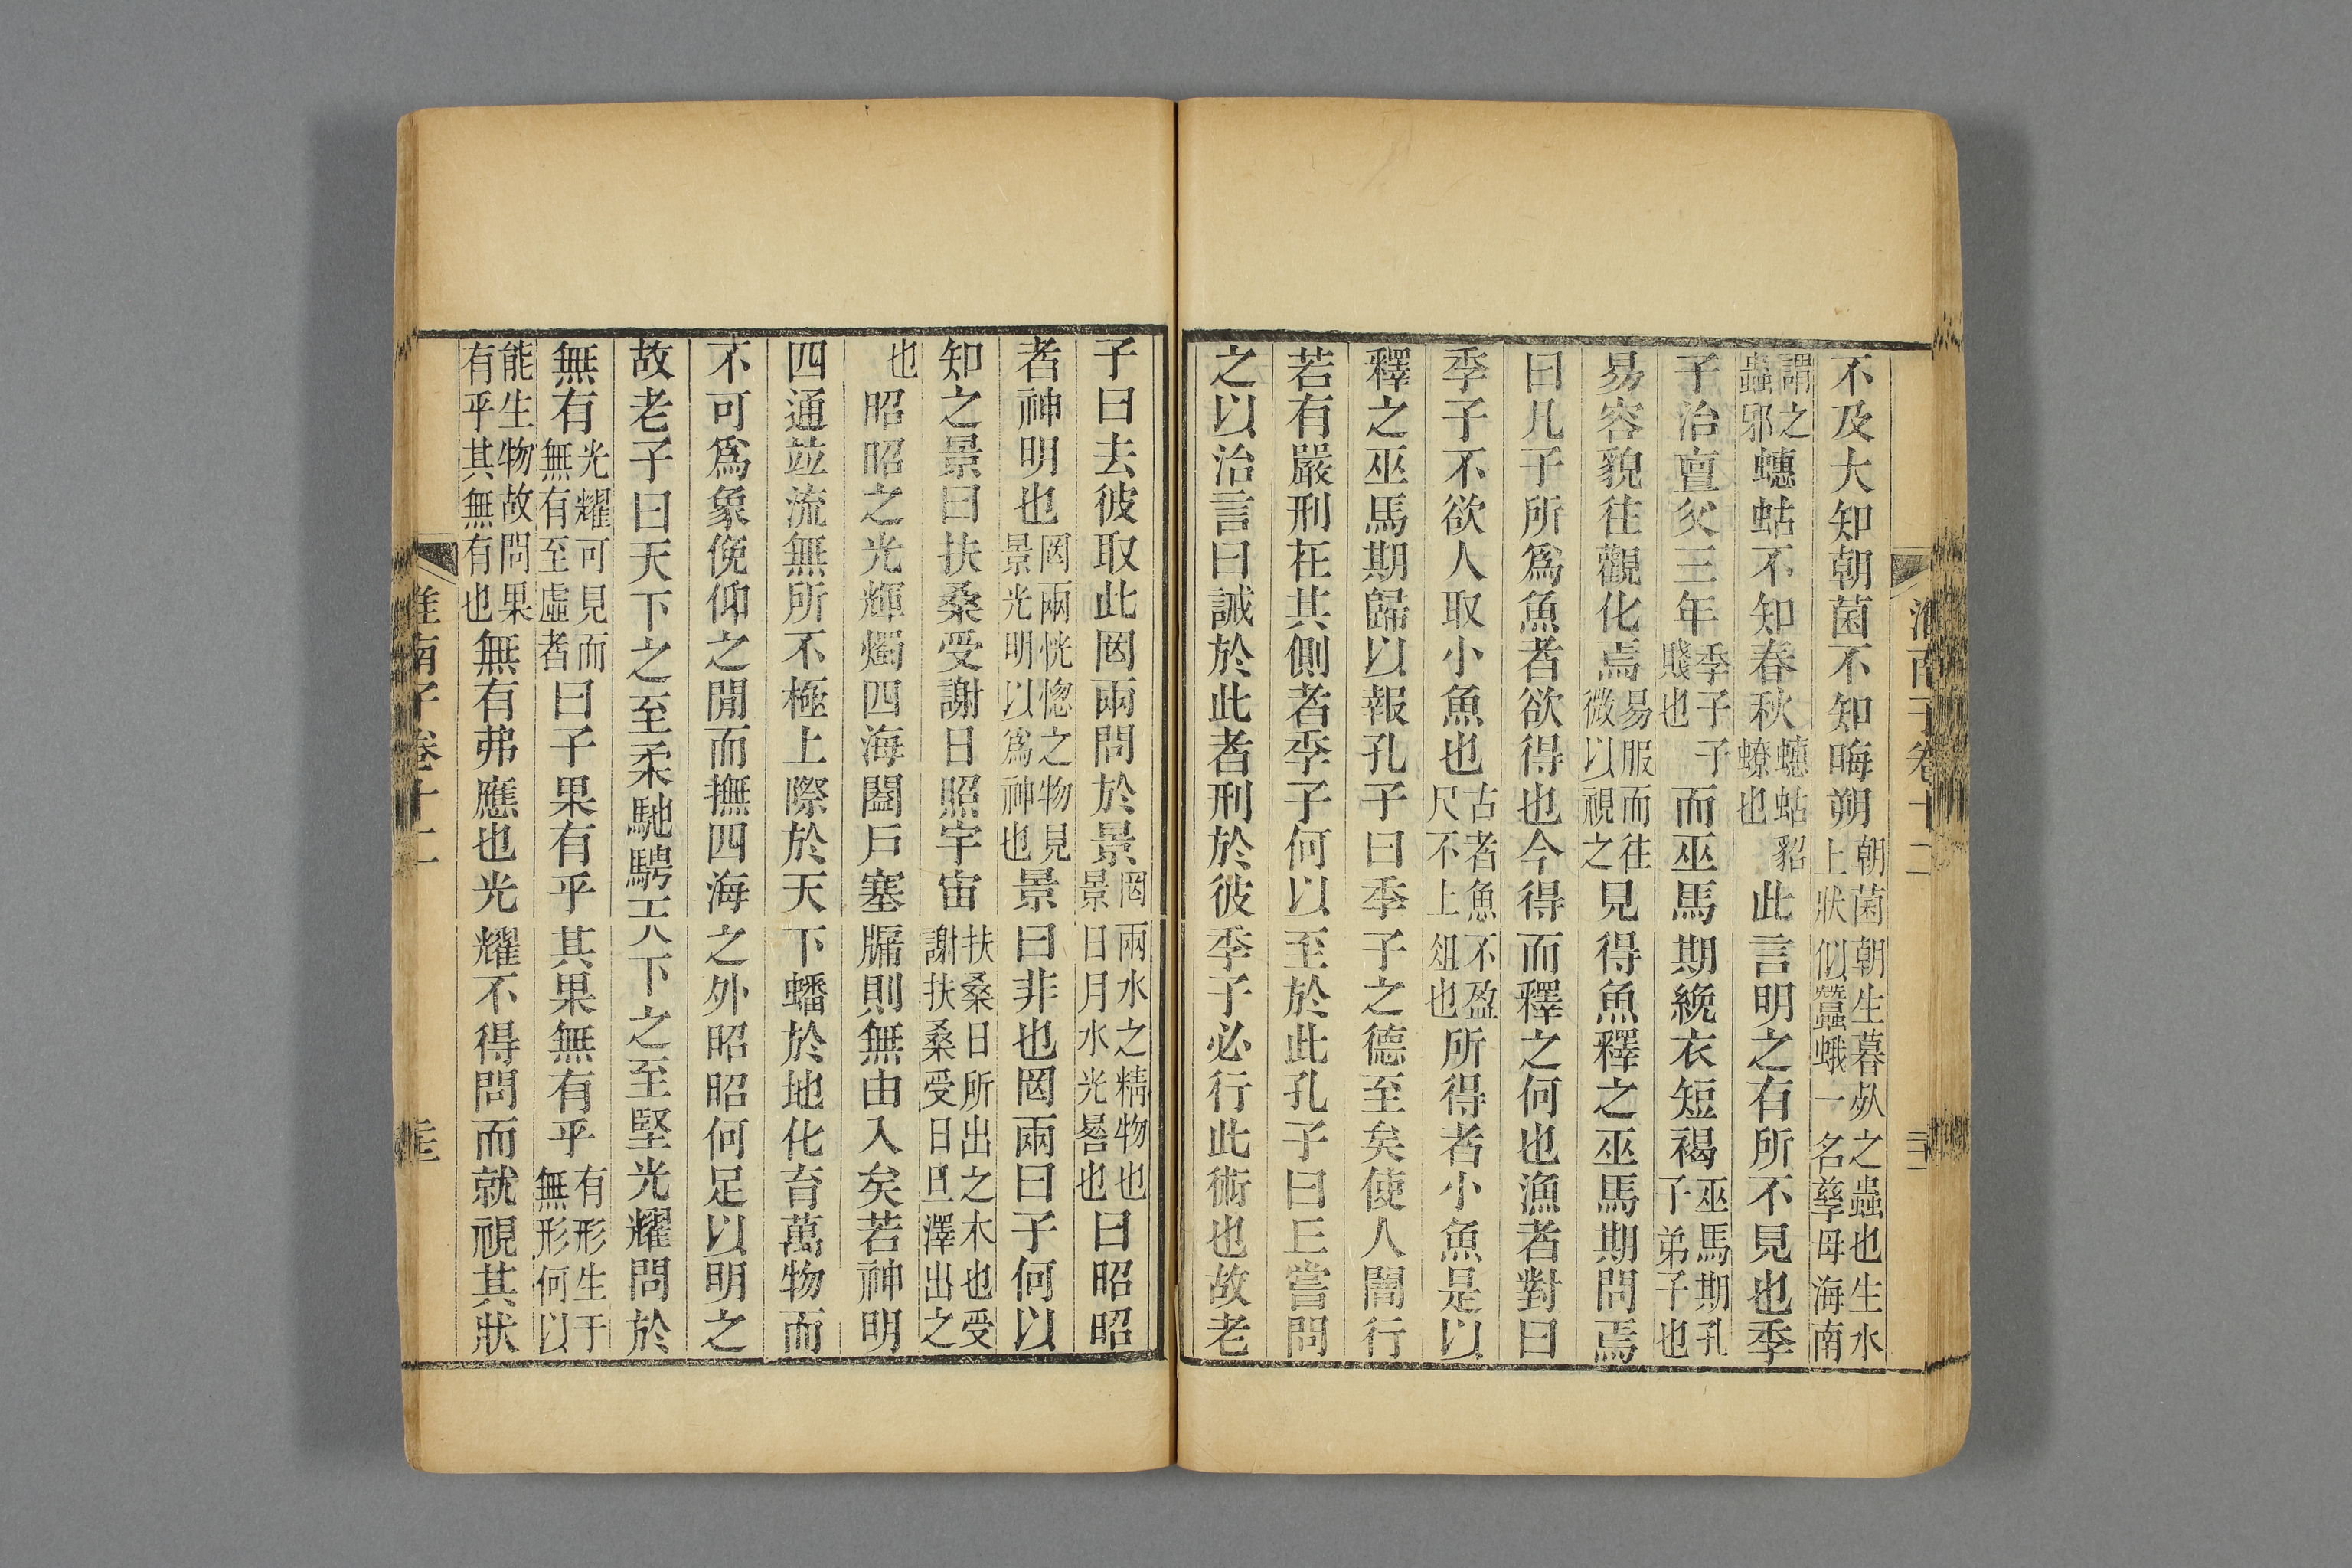 淮南子卷十二
不及大知朝菌不知晦朔朝菌朝生暮死之蟲也生水上狀似蠶蛾一名孳母海南
謂之蟲邪蟪蛄不知春秋蟪蛄貂蟟也此言明之有所不見也季
子治亶父三年季子子賤也而巫馬期絻衣短褐巫馬期孔子弟子也
易容貌往觀化焉易服而往微以視之見得魚釋之巫馬期問焉
曰凡子所爲魚者欲得也今得而釋之何也漁者對曰
季子不欲人取小魚也古者魚不盈尺不上俎也所得者小魚是以
釋之巫馬期歸以報孔子曰季子之德至矣使人闇行
若有嚴刑在其側者季子何以至於此孔子曰丘嘗問
之以治言曰誠於此者刑於彼季子必行此術也故老
子曰去彼取此罔兩問於景罔兩水之精物也景日月水光晷也曰昭昭
者神明也罔兩恍惚之物見景光明以爲神也景曰非也罔兩曰子何以
知之景曰扶桑受謝日照宇宙扶桑日所出之木也受謝扶桑受日旦澤出之
也昭昭之光輝燭四海闔戶塞牖則無由入矣若神明
四通竝流無所不極上際於天下蟠於地化育萬物而
不可爲象俛仰之閒而撫四海之外昭昭何足以明之
故老子曰天下之至柔馳騁天下之至堅光耀問於
無有光耀可見而無有至虛者曰子果有乎其果無有乎有形生于無形何以
能生物故問果有乎其無有也無有弗應也光耀不得問而就視其狀
淮南子卷十二